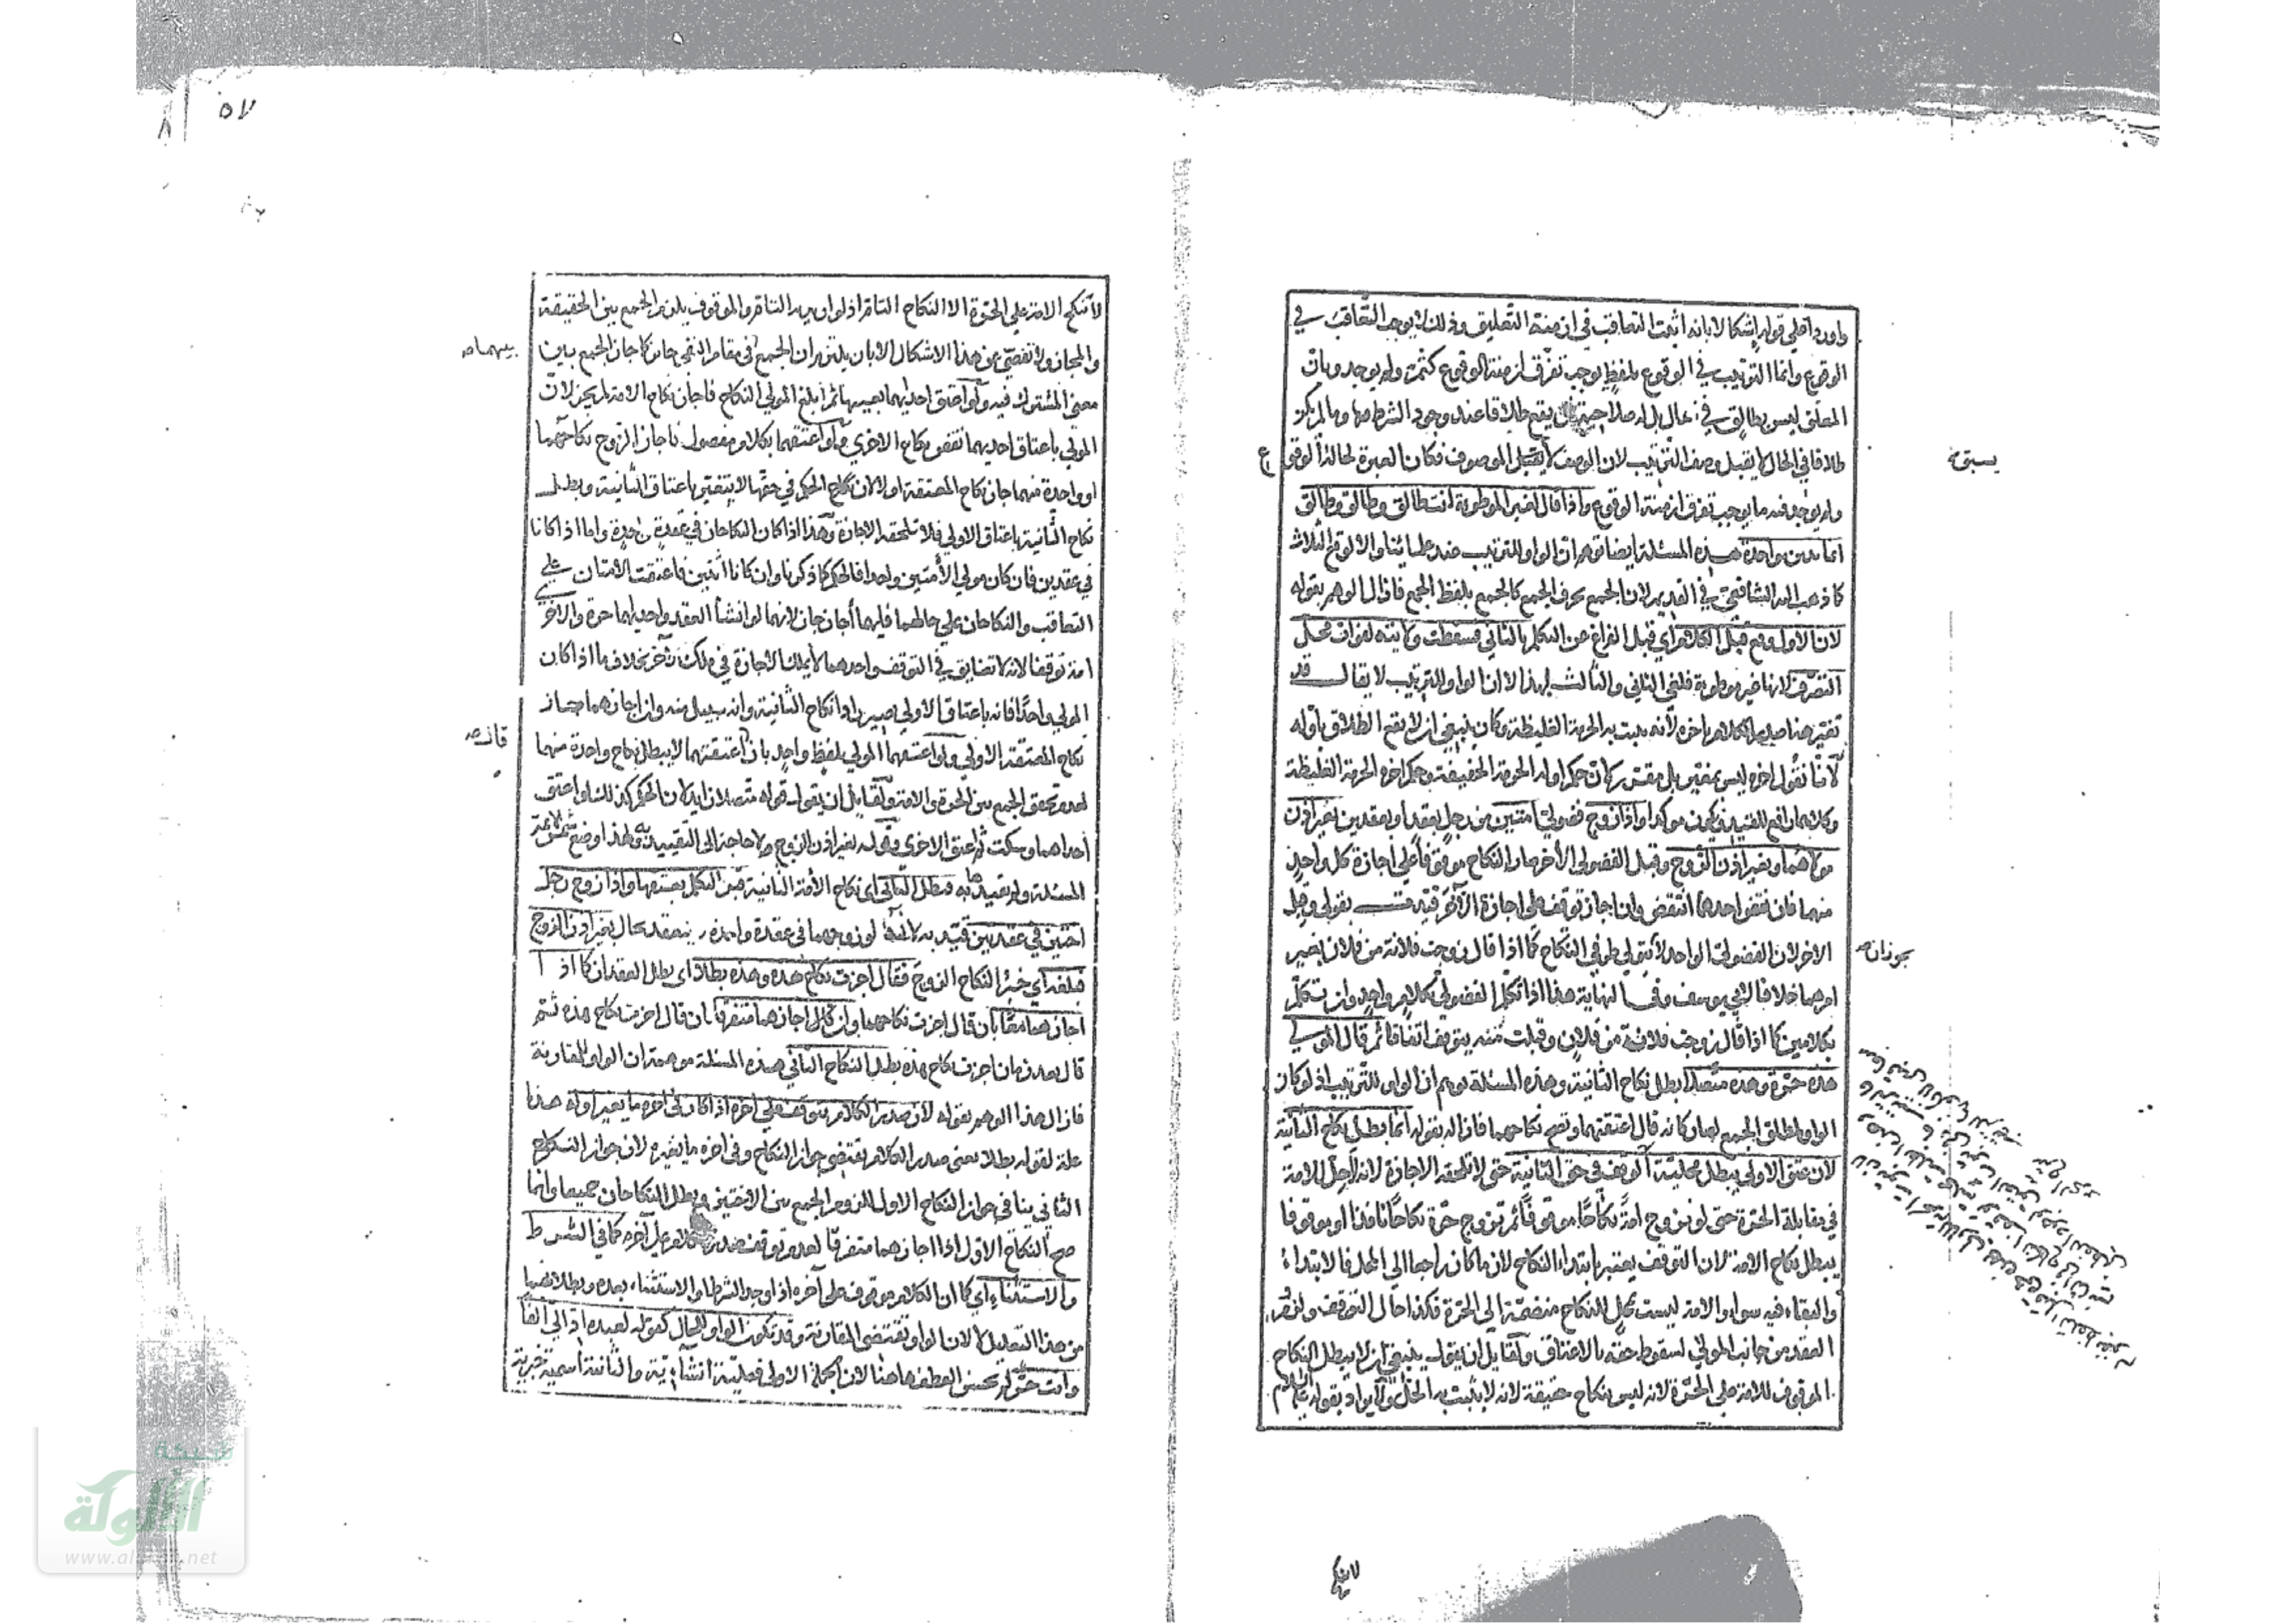 واورد على قوله اشكالا بانه اثبت التعاقب في ازمنة التعليق وذلك لا يوجب التعاقب في
الوقوع وانما الترتيب في الوقوع بلفظ يوجب تفرق ازمنة الوقوع كثم ولم يوجد وبان
المعلق ليس بطالق في الحال بل له صلاحية ان يقع طلاقا عند وجود الشرط وما لم يكن
طلاقا في الحال لا يقبل وصف الترتيب لان الوصف لا يسبق الموصوف فكان العبرة لحالة الوقوع
ولم يوجد فيه ما يوجب تفرق ازمنة الوقوع واذا قال لغير الموطوءة انت طالق وطالق وطالق
انما تبين واحدة هذه المسئلة ايضا توهم ان الواو للترتيب عند علمائنا والا لوقع الثلاث
كما ذهب اليه الشافعي في القديم لان الجمع بحرف الجمع كالجمع بلفظ الجمع فازال الوهم بقوله
لان الاول وقع قبل التكلم اي قبل الفراغ من التكلم بالثاني فسقطت ولايته لفوات محل
التصرف لانها غير موطوءة فلغى الثاني والثالث لهذا لا ان الواو للترتيب لا يقال قد
تغير هنا صدر الكلام باخره لانه يثبت به الحرمة الغليظة وكان ينبغي ان لا يقع الطلاق باوله
لانا نقول اخره ليس بمغير بل مقرر لان حكم اوله الحرمة الخفيفة وحكم اخره الحرمة الغليظة
وكلاهما رافع للقيد فيكون مؤكدا واذا زوج فضولي امتين من رجل بعقد او بعقدين بغير اذن
مولاهما وبغير اذن الزوج وقبل الفضولي الآخر صار النكاح موقوفا على اجازة كل واحد
منهما فان نقض احدهما انتقض وان اجاز توقف على اجازة الآخر قيدت بقولي وقبل
الاخر لان الفضولي الواحد لا يتولى طرفي النكاح كما اذا قال زوجت فلانة من فلان بغير
امرهما خلافا لابي يوسف وفي النهاية هذا اذا تكلم الفضولي بكلام واحد وان تكلم
بكلامين كما اذا قال زوجت فلانة من فلان وقبلت منه يتوقف اتفاقا ثم قال المولى
هذه حرة وهذه متصلا بطل نكاح الثانية وهذه المسئلة توهم ان الواو للترتيب اذ لو كان
الواو لمطلق الجمع لصار كانه قال اعتقتهما ويصح نكاحهما فازاله بقوله انما يبطل نكاح الثانية
لان عتق الاولى يبطل محلية الوقف في حق الثانية حتى لا تلحقه الاجازة لانه لا حل للامة
في مقابلة الحرة حتى لو تزوج امة نكاحا موقوفا ثم تزوج حرة نكاحا نافذا او موقوفا
يبطل نكاح الامة لان التوقف يعتبر بابتداء النكاح لان ما كان راجعا الى المحل فالابتداء
والبقاء فيه سواء والامة ليست بمحل للنكاح منضمة الى الحرة فكذا حال التوقف
العقد من جانب المولى لسقوط حقه بالاعتاق ولقائل ان يقول ينبغي ان لا يبطل النكاح
الموقوف للامة على الحرة لانه ليس بنكاح حقيقة لانه لا يثبت به الحل ولا يراد بقوله عليه السلام
يسبق صح
يجوز ان
لا تنكح
لا تنكح الامة على الحرة الا النكاح التام اذ لو اريد التام والموقوف يلزم الجمع بين الحقيقة
والمجاز ولا تفصي من هذا الاشكال الا بان يلتزم ان الجمع في مقام النفي جائز كما جاز الجمع بين
معنى المشترك فيه ولو اعتق احديهما بعينها ثم ابلغ المولى النكاح فاجاز نكاح الامة لم يجز لان
المولى باعتاق احديهما نقض نكاح الاخرى ولو اعتقهما بكلام مفصول فاجاز الزوج نكاحهما
او واحدة منهما جاز نكاح المعتقة اولا لان الحكم في حقها لا يتغير باعتاق الثانية وبطل
نكاح الثانية باعتاق الاولى فلا تلحقه الاجازة وهذا اذا كان النكاحان في عقدة واحدة واما اذا كانا
في عقدين فان كان مولى الأمتين واحدا فالحكم كما ذكرنا وان كانا اثنين فاعتقت الامتان على
التعاقب والنكاحان على حالهما فايهما أجاز جاز لانهما لو انشأ العقد واحديهما حرة والاخرى
امة توقفا لانه لا تضايق في التوقف واحدهما لا يملك الاجازة في ملك الآخر بخلاف ما اذا كان
المولى واحدا فانه باعتاق الاولى يصير رادا نكاح الثانية وانه بسبيل منه وان اجازهما جاز
نكاح المعتقة الاولى ولو اعتقهما المولى بلفظ واحد بان اعتقتهما لا يبطل نكاح واحدة منهما
لعدم تحقق الجمع بين الحرة والامة ولقائل ان يقول قوله متصلا زايد لان الحكم كذلك لو اعتق
احداهما وسكت ثم اعتق الاخرى وقوله بغير اذن الزوج لا حاجة الى التقييد به ولهذا وضع شمس الائمة
المسئلة ولم يقيدها به فبطل الثاني اى نكاح الأمة الثانية قبل التكلم بعتقها واذا زوج رجل
اختين في عقدين قيد به لانه لو زوجهما في عقدة واحدة لم ينعقد بحال بغير اذن الزوج
فبلغه اي خبر النكاح الزوج فقال اجزت نكاح هذه وهذه بطلا اى بطل العقدان كما اذا
اجازهما معا بان قال اجزت نكاحهما وان كان اجازهما متفرقا بان قال اجزت نكاح هذه ثم
قال بعد زمان اجزت نكاح هذه بطل النكاح الثاني هذه المسئلة موهمة ان الواو للمقارنة
فازال هذا الوهم بقوله لان صدر الكلام يتوقف على اخره اذا كان في اخره ما يغير اوله هذا
علة لقوله بطلا يعنى صدر الكلام يقتضى جواز النكاح وفى اخره ما يغيره لان جواز النكاح
الثاني ينافي جواز النكاح الاول للزوم الجمع بين الاختين ويبطل النكاحان جميعا وانما
صح النكاح الاول اذا اجازهما متفرقا لعدم توقف صدر الكلام على آخره كما في الشرط
والاستثناء اي كما ان الكلام موقوف على آخره اذا وجد الشرط او الاستثناء بعده وبطلا
من هذا التعليل لا لان الواو تقتضى المقارنة وقد تكون الواو للحال كقوله لعبده اذ الي الفا
وانت حر لم يحسن العطف هاهنا لان الجملة الاولى فعلية انشائية والثانية اسمية خبرية
بينهما صح
قانه صح
٥٧
شبكة
الألوكة
www.alukah.net